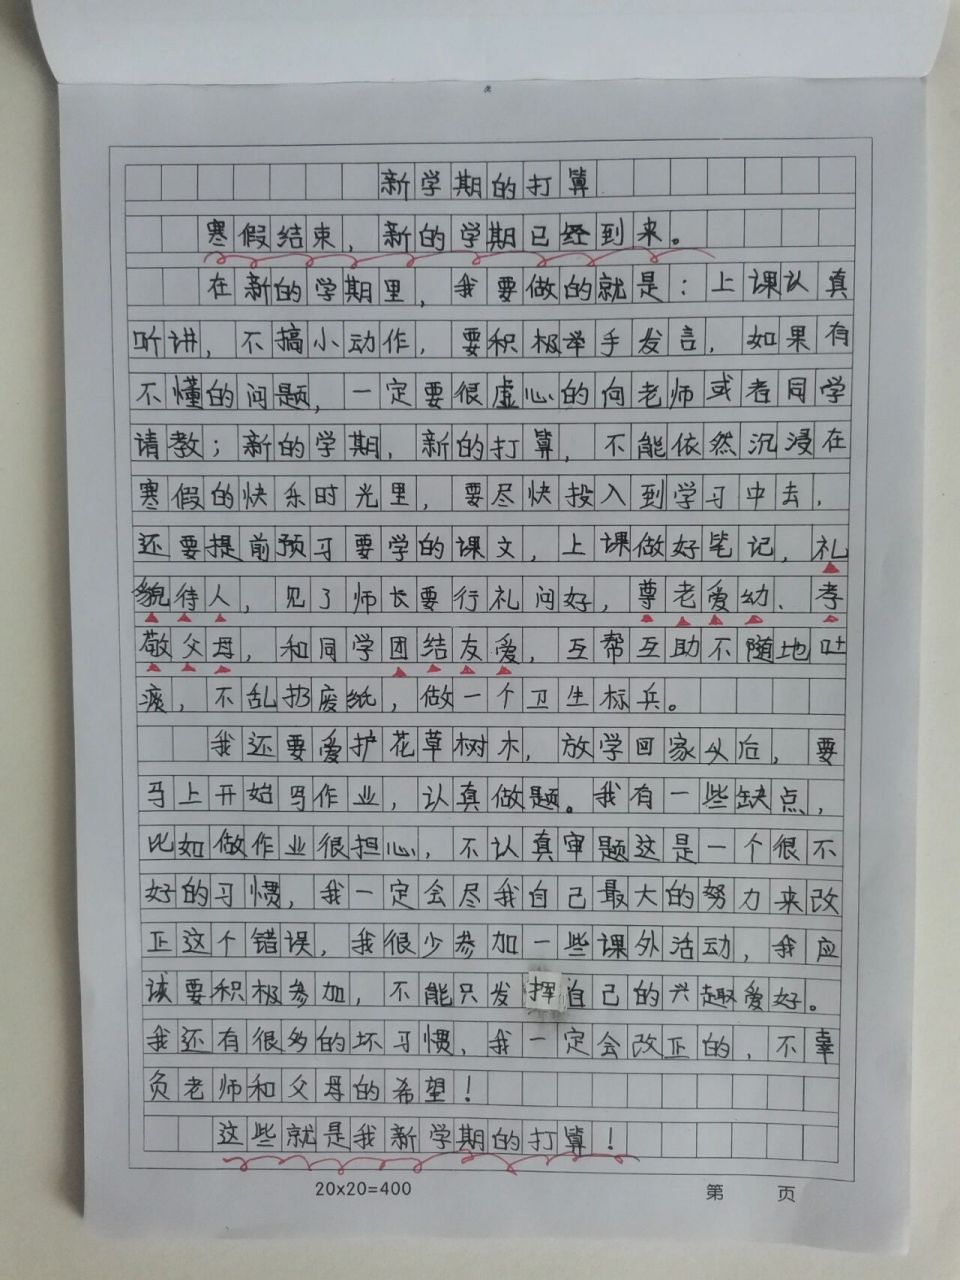 新学期的打算
寒假结束，新的学期已经到来。
在新的学期里，我要做的就是：上课认真
听讲，不搞小动作，要积极举手发言，如果有
不懂的问题，一定要很虚心的向老师或者同学
请教；新的学期，新的打算，不能依然沉浸在
寒假的快乐时光里，要尽快投入到学习中去，
还要提前预习要学的课文，上课做好笔记，礼
貌待人，见了师长要行礼问好，尊老爱幼、孝
敬父母，和同学团结友爱，互帮互助不随地吐
痰，不乱扔废纸，做一个卫生标兵。
我还要爱护花草树木，放学回家以后，要
马上开始写作业，认真做题。我有一些缺点，
比如做作业很担心，不认真审题这是一个很不
好的习惯，我一定会尽我自己最大的努力来改
正这个错误，我很少参加一些课外活动，我应
该要积极参加，不能只发挥自己的兴趣爱好。
我还有很多的坏习惯，我一定会改正的，不辜
负老师和父母的希望！
这些就是我新学期的打算！
20×20=400
第 页